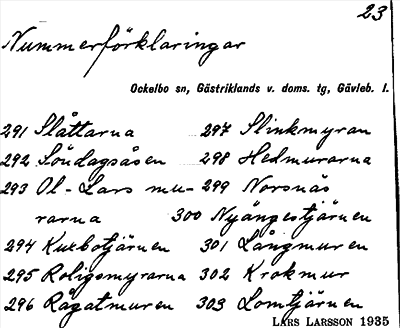 23
Nummerförklaringar
Ockelbo sn, Gästriklands v. doms. tg, Gävleb. l.
291 Slåttarna 297 Slinkmyran
292 Söndagsåsen 298 Hedmurarna
293 Ol-Lars mu- 299 Norsnäs
rarna 300 Nyängestjärnen
294 Kurbotjärnen 301 Långmuren
295 Roligsmyrarna 302 Krokmur
296 Rågatmuren 303 Lomtjärnen
LARS LARSSON 1935